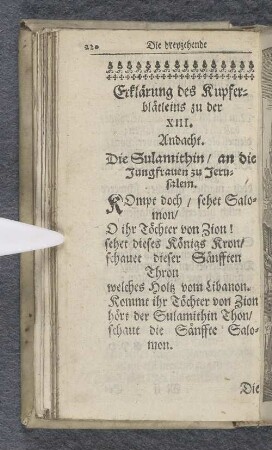 220 Die dreyzehende
Erklärung des Kupfer-
blätleins zu der
XIII.
Andacht.
Die Sulamithin / an die
Jungfrauen zu Jeru-
salem.
KOmpt doch / sehet Salo-
mon /
O ihr Töchter von Zion!
sehet dieses Königs Kron /
schauet dieser Sänfften
Thron
welches Holtz vom Libanon.
Kommt ihr Töchter von Zion
hört der Sulamithin Thon /
schaut die Sänffte Salo-
mon.
Die